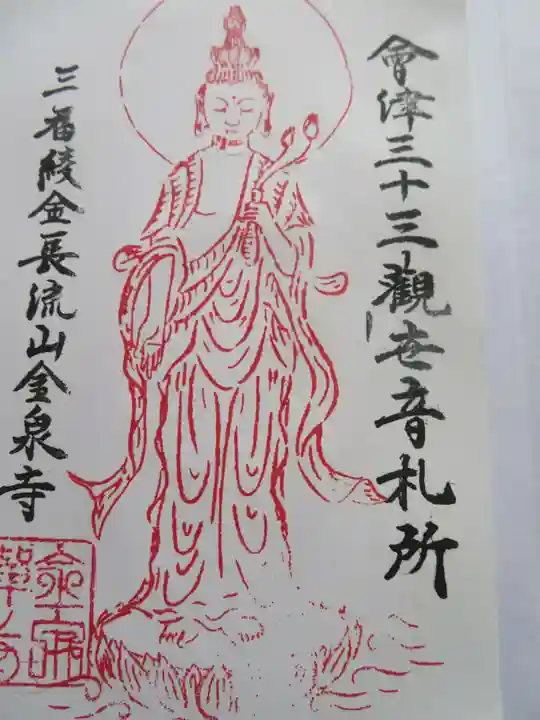 會津三十三觀世音札所
三番綾金長流山金泉寺